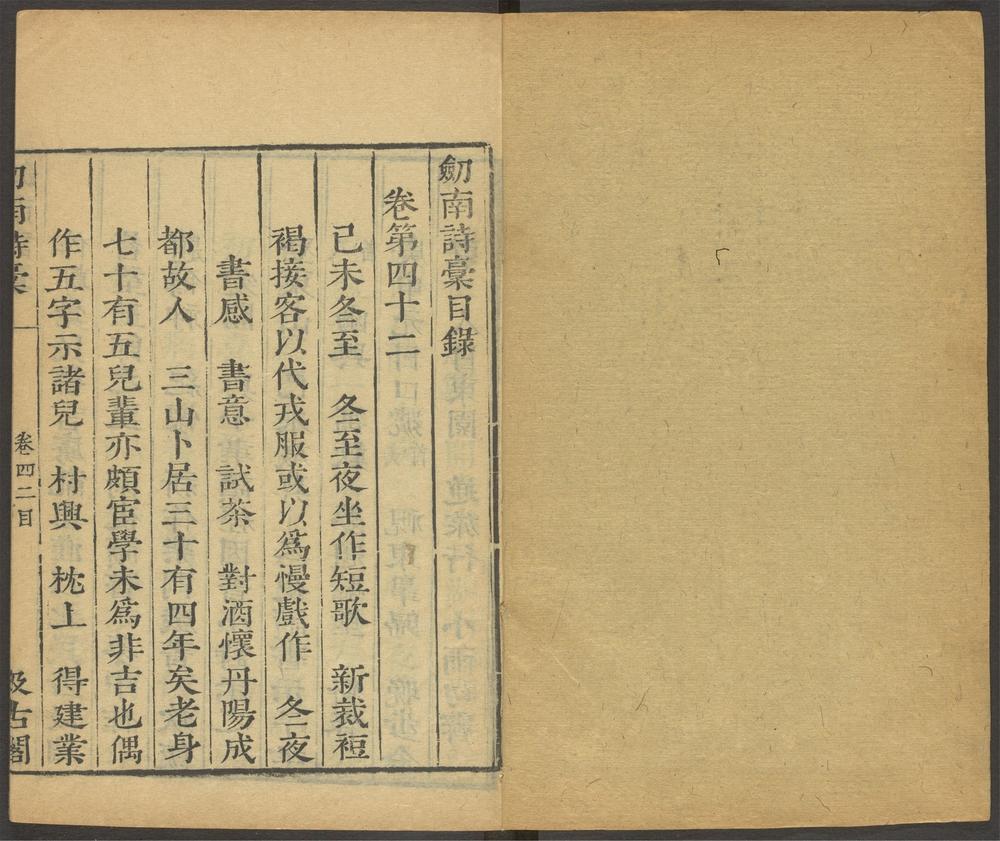 劒南詩稾目錄
卷第四十二
己未冬至　冬至夜坐作短歌　新裁短
褐接客以代戎服或以爲慢戲作　冬夜
書感　書意　試茶　對酒懷丹陽成
都故人　三山卜居三十有四年矣老身
七十有五兒輩亦頗宦學未爲非吉也偶
作五字示諸兒　村興　枕上　得建業
劒南詩稾　卷四二目　汲古閣